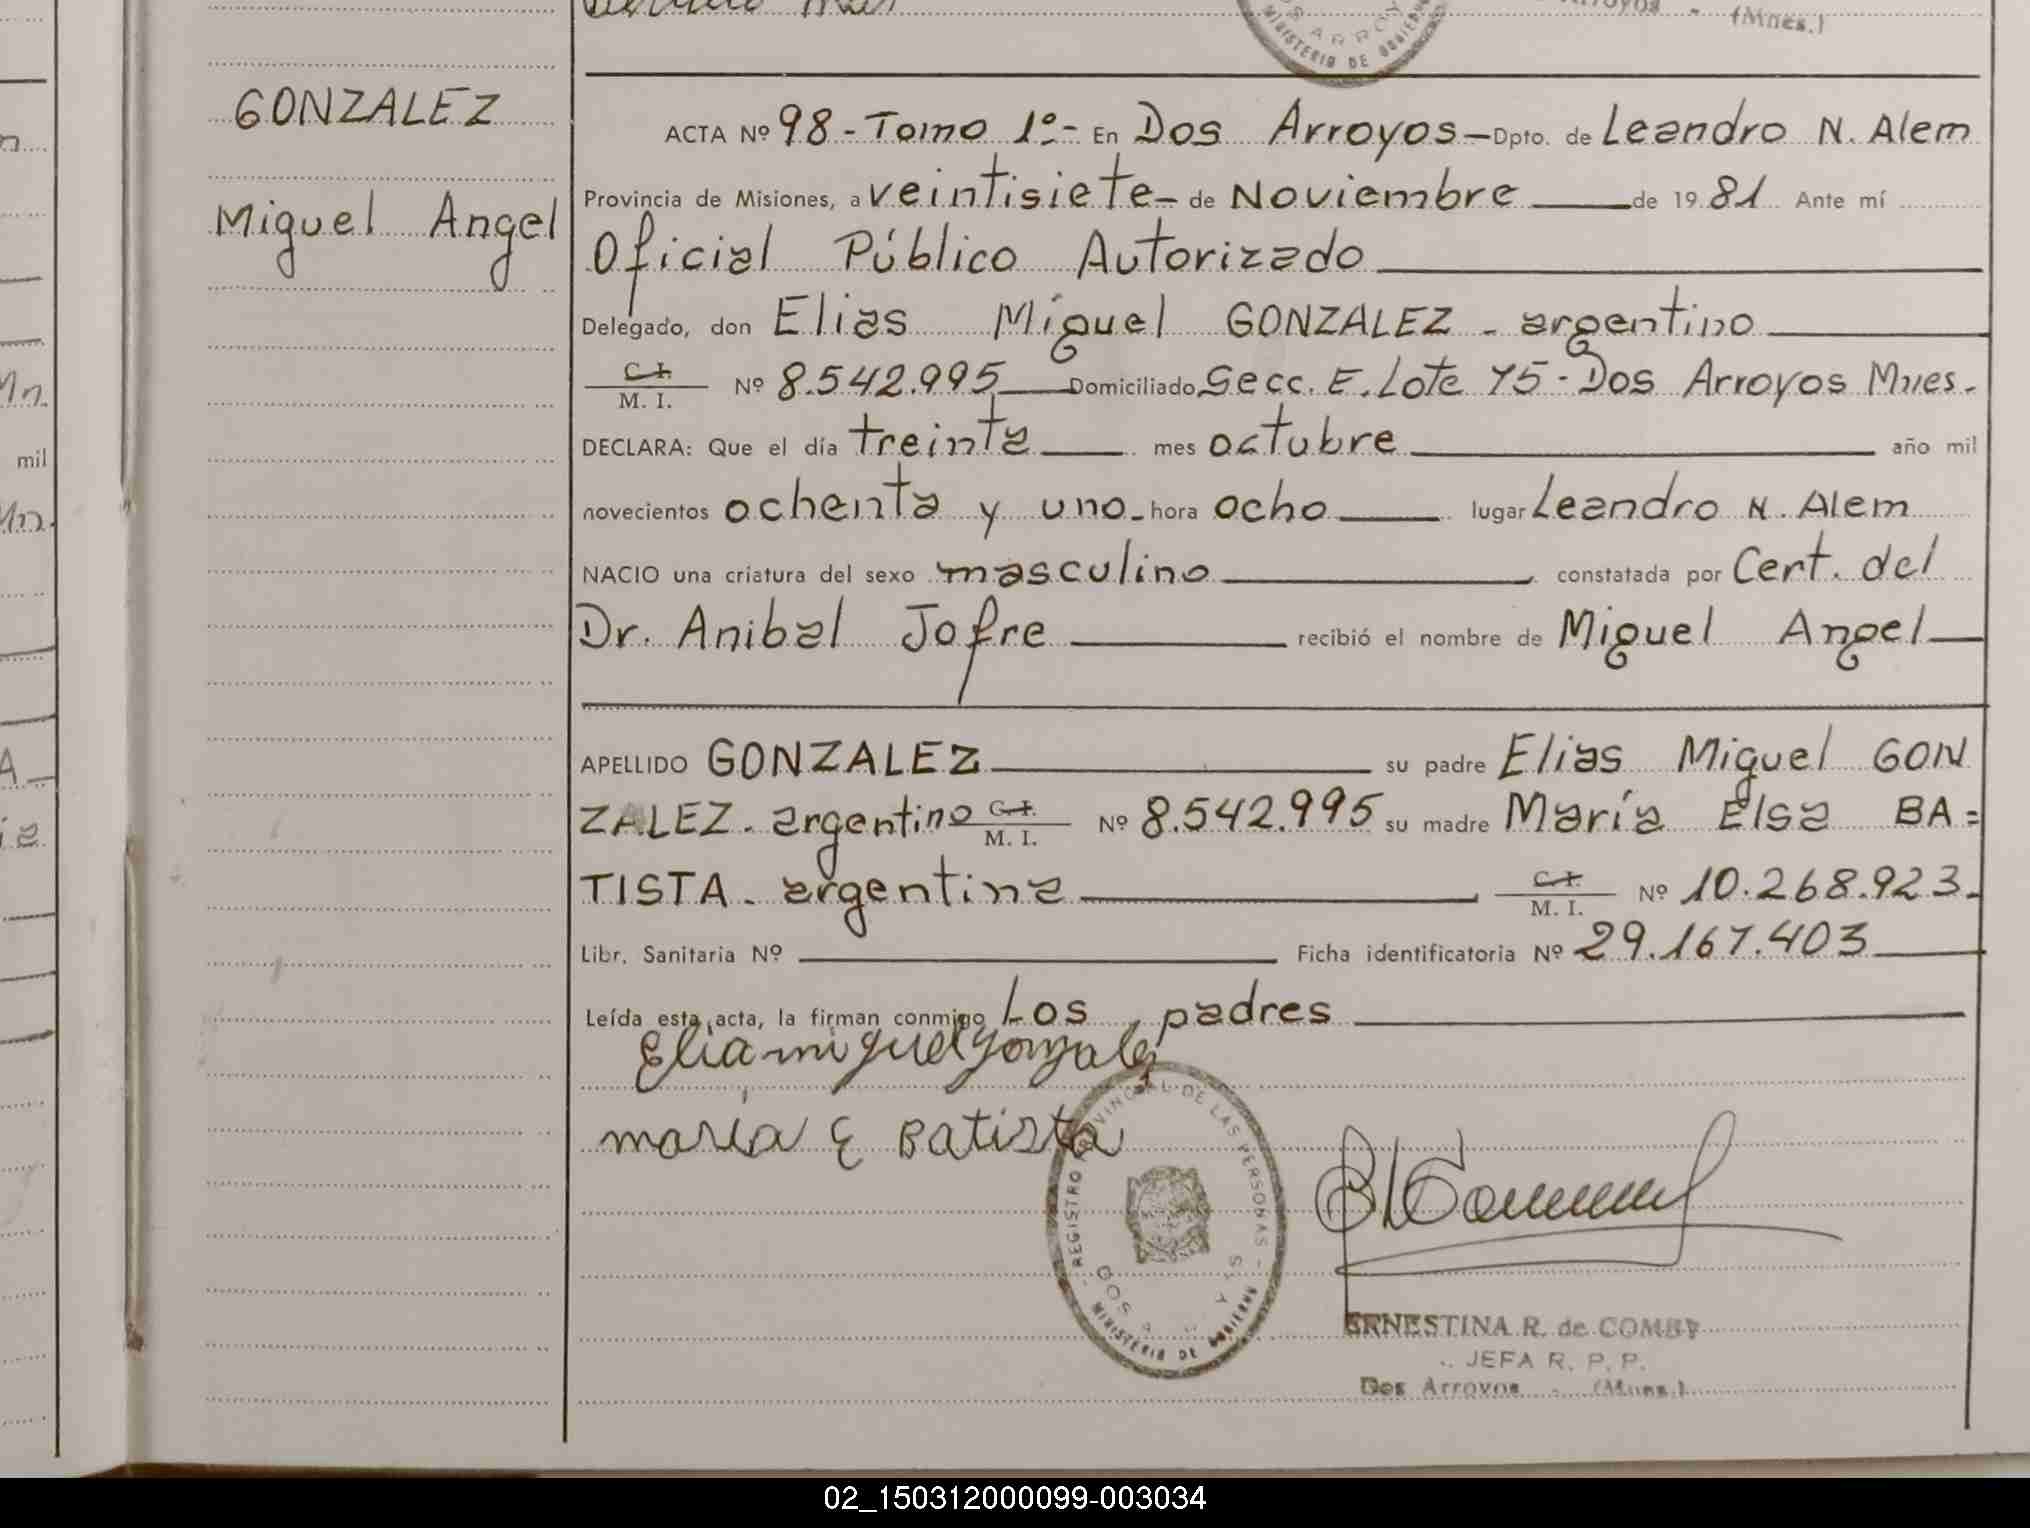 (Mnes.)
MINISTERIO DE GOBIERNO
GONZALEZ
Miguel Angel
ACTA Nº 98 - Tomo 1º - En Dos Arroyos - Dpto. de Leandro N. Alem
Provincia de Misiones, a veintisiete - de Noviembre de 1981 Ante mí
Oficial Público Autorizado
Delegado, don Elias Miguel GONZALEZ - argentino
C. I. / M. I. Nº 8.542.995 Domiciliado Secc. E. Lote 75 - Dos Arroyos Mnes.
DECLARA: Que el día treinta mes octubre año mil
novecientos ochenta y uno - hora ocho lugar Leandro N. Alem
NACIO una criatura del sexo masculino constatada por Cert. del
Dr. Anibal Jofre recibió el nombre de Miguel Angel
APELLIDO GONZALEZ su padre Elias Miguel GON
ZALEZ - argentino C. I. / M. I. Nº 8.542.995 su madre María Elsa BA=
TISTA - argentina C. I. / M. I. Nº 10.268.923.
Libr. Sanitaria Nº Ficha identificatoria Nº 29.167.403
Leída esta acta, la firman conmigo Los padres
Elia miguel Gonzalez
maria E Batista
REGISTRO PROVINCIAL DE LAS PERSONAS
MINISTERIO DE GOBIERNO
ERNESTINA R. de COMBY
JEFA R. P. P.
Dos Arroyos - (Mnes.)
mil
02_150312000099-003034